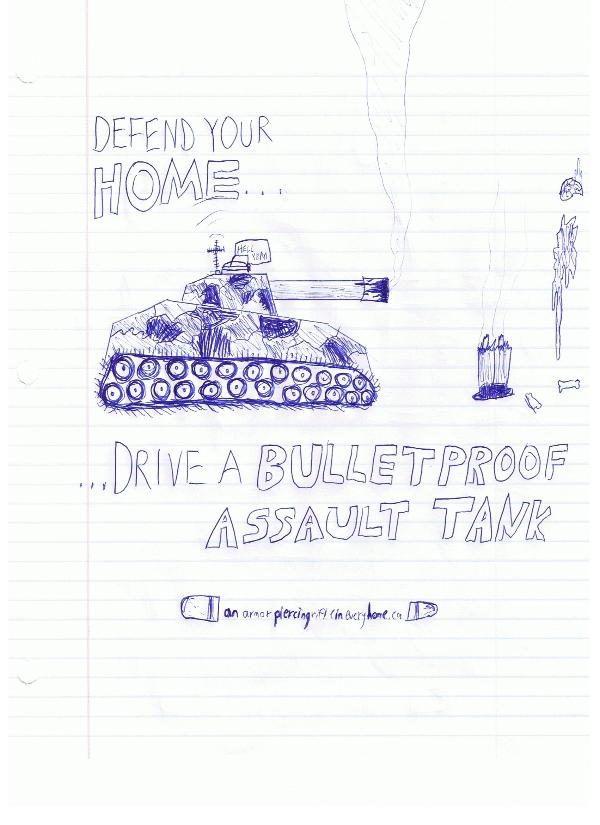 DEFEND YOUR
HOME...
HELL
YEAH
...DRIVE A BULLETPROOF
ASSAULT TANK
an armor piercing rifle in every home.ca